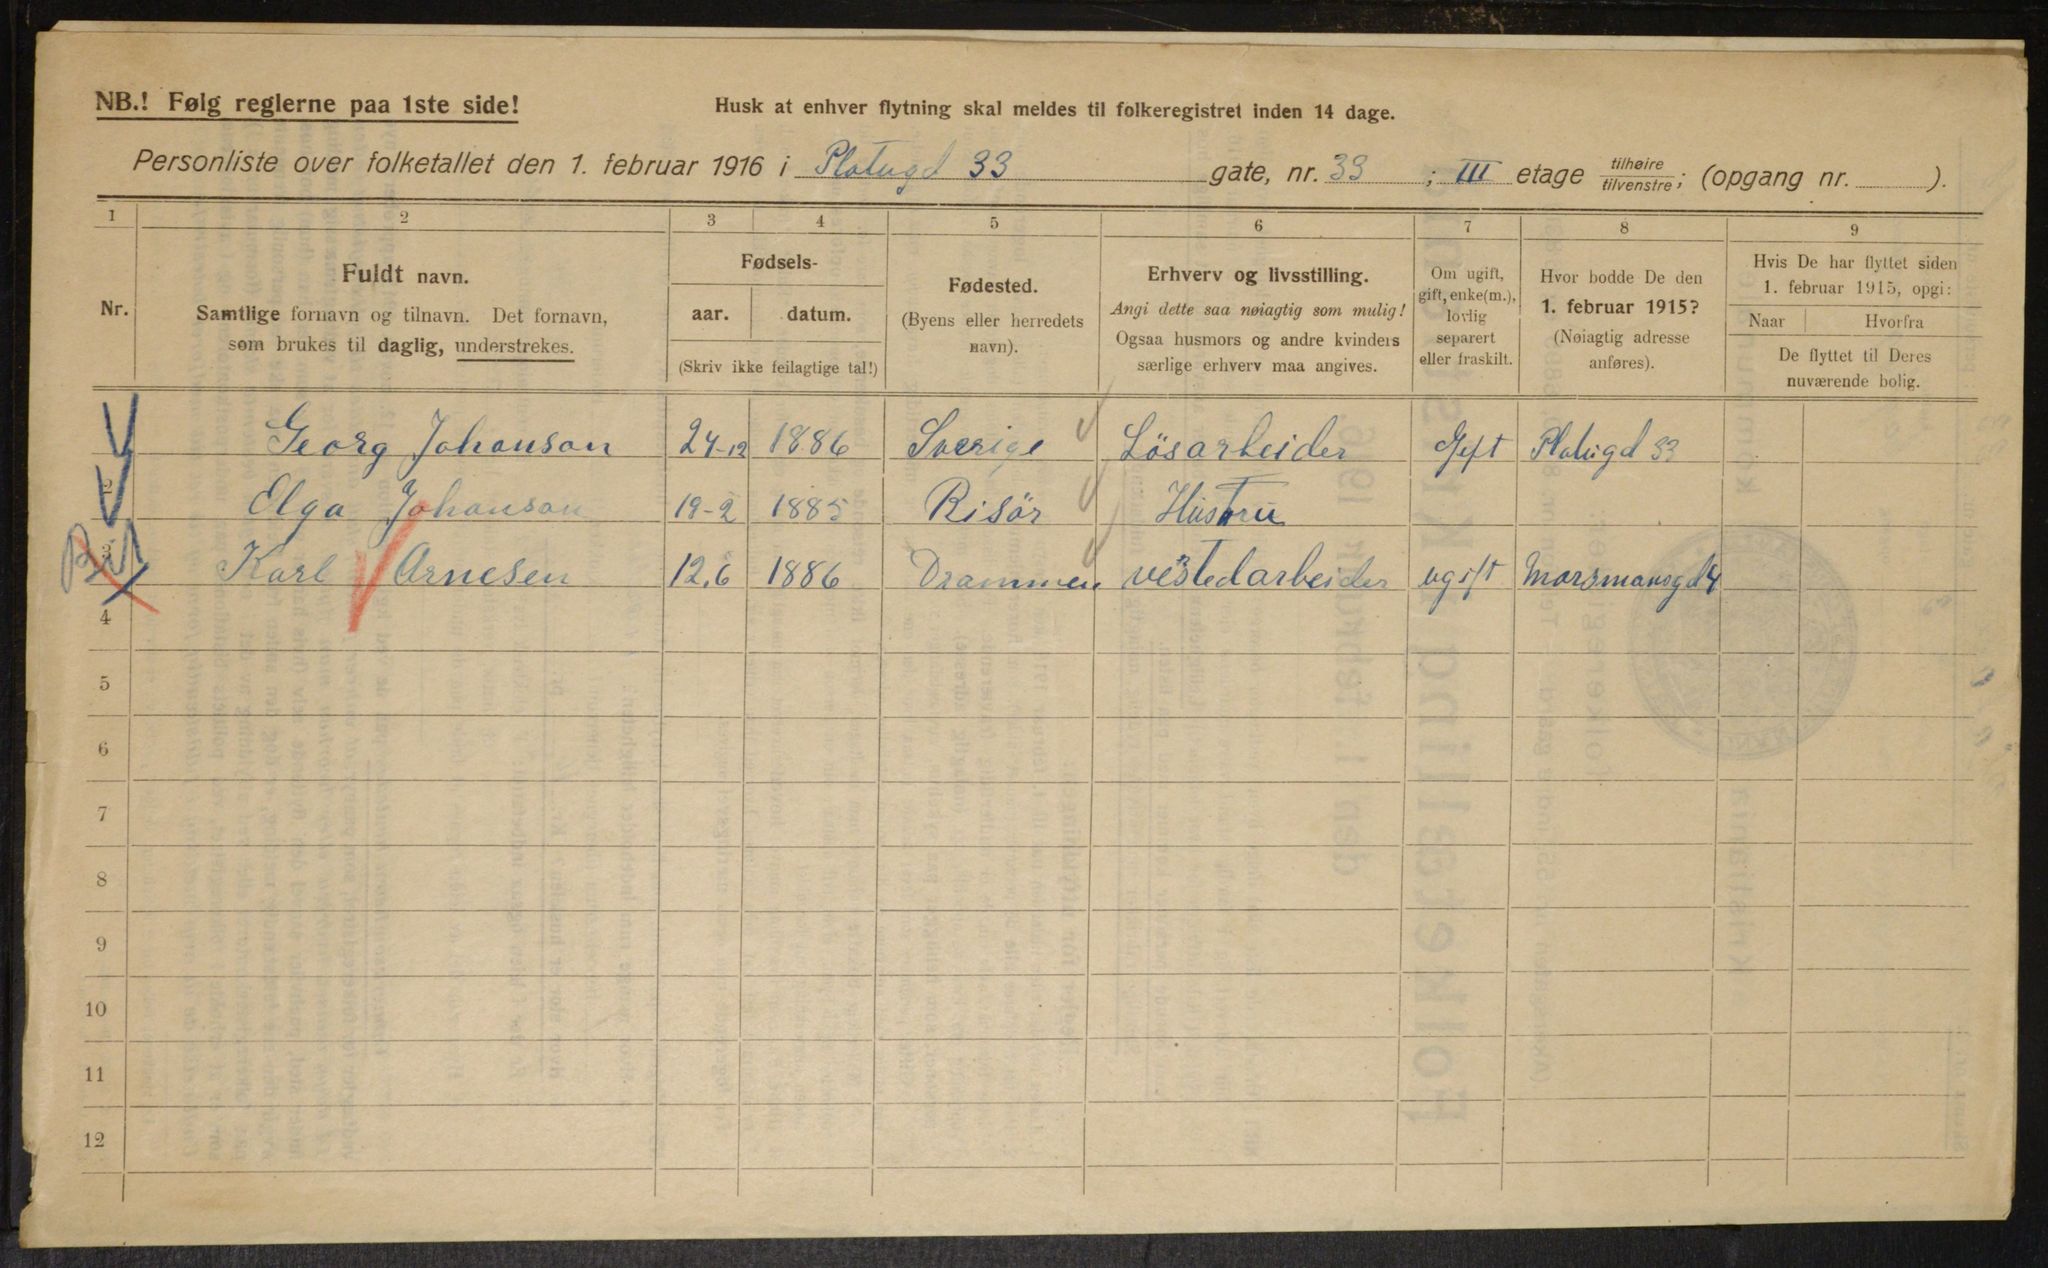 NB.! Følg reglerne paa 1ste side!
Husk at enhver flytning skal meldes til folkeregistret inden 14 dage.
Personliste over folketallet den 1. februar 1916 i Platugd 33 gate, nr. 33 ; III etage tilhøire/tilvenstre; (opgang nr. ).
1 2 3 4 5 6 7 8 9
Nr.
Fuldt navn.
Samtlige fornavn og tilnavn. Det fornavn,
som brukes til daglig, understrekes.
Fødsels-
aar. datum.
(Skriv ikke feilagtige tal!)
Fødested.
(Byens eller herredets
navn).
Erhverv og livsstilling.
Angi dette saa nøiagtig som mulig!
Ogsaa husmors og andre kvinders
særlige erhverv maa angives.
Om ugift,
gift, enke(m.),
lovlig
separert
eller fraskilt.
Hvor bodde De den
1. februar 1915?
(Nøiagtig adresse
anføres).
Hvis De har flyttet siden
1. februar 1915, opgi:
Naar Hvorfra
De flyttet til Deres
nuværende bolig.
Georg Johanson 24-12 1886 Sverige Lösarbeider Gift Platugd 33
2 Elga Johanson 19-2 1885 Risör Hustru
3 Karl Arnesen 12.6 1886 Drammen vestedarbeider ugift Morsmansgd 4
4
5
6
7
8
9
10
11
12